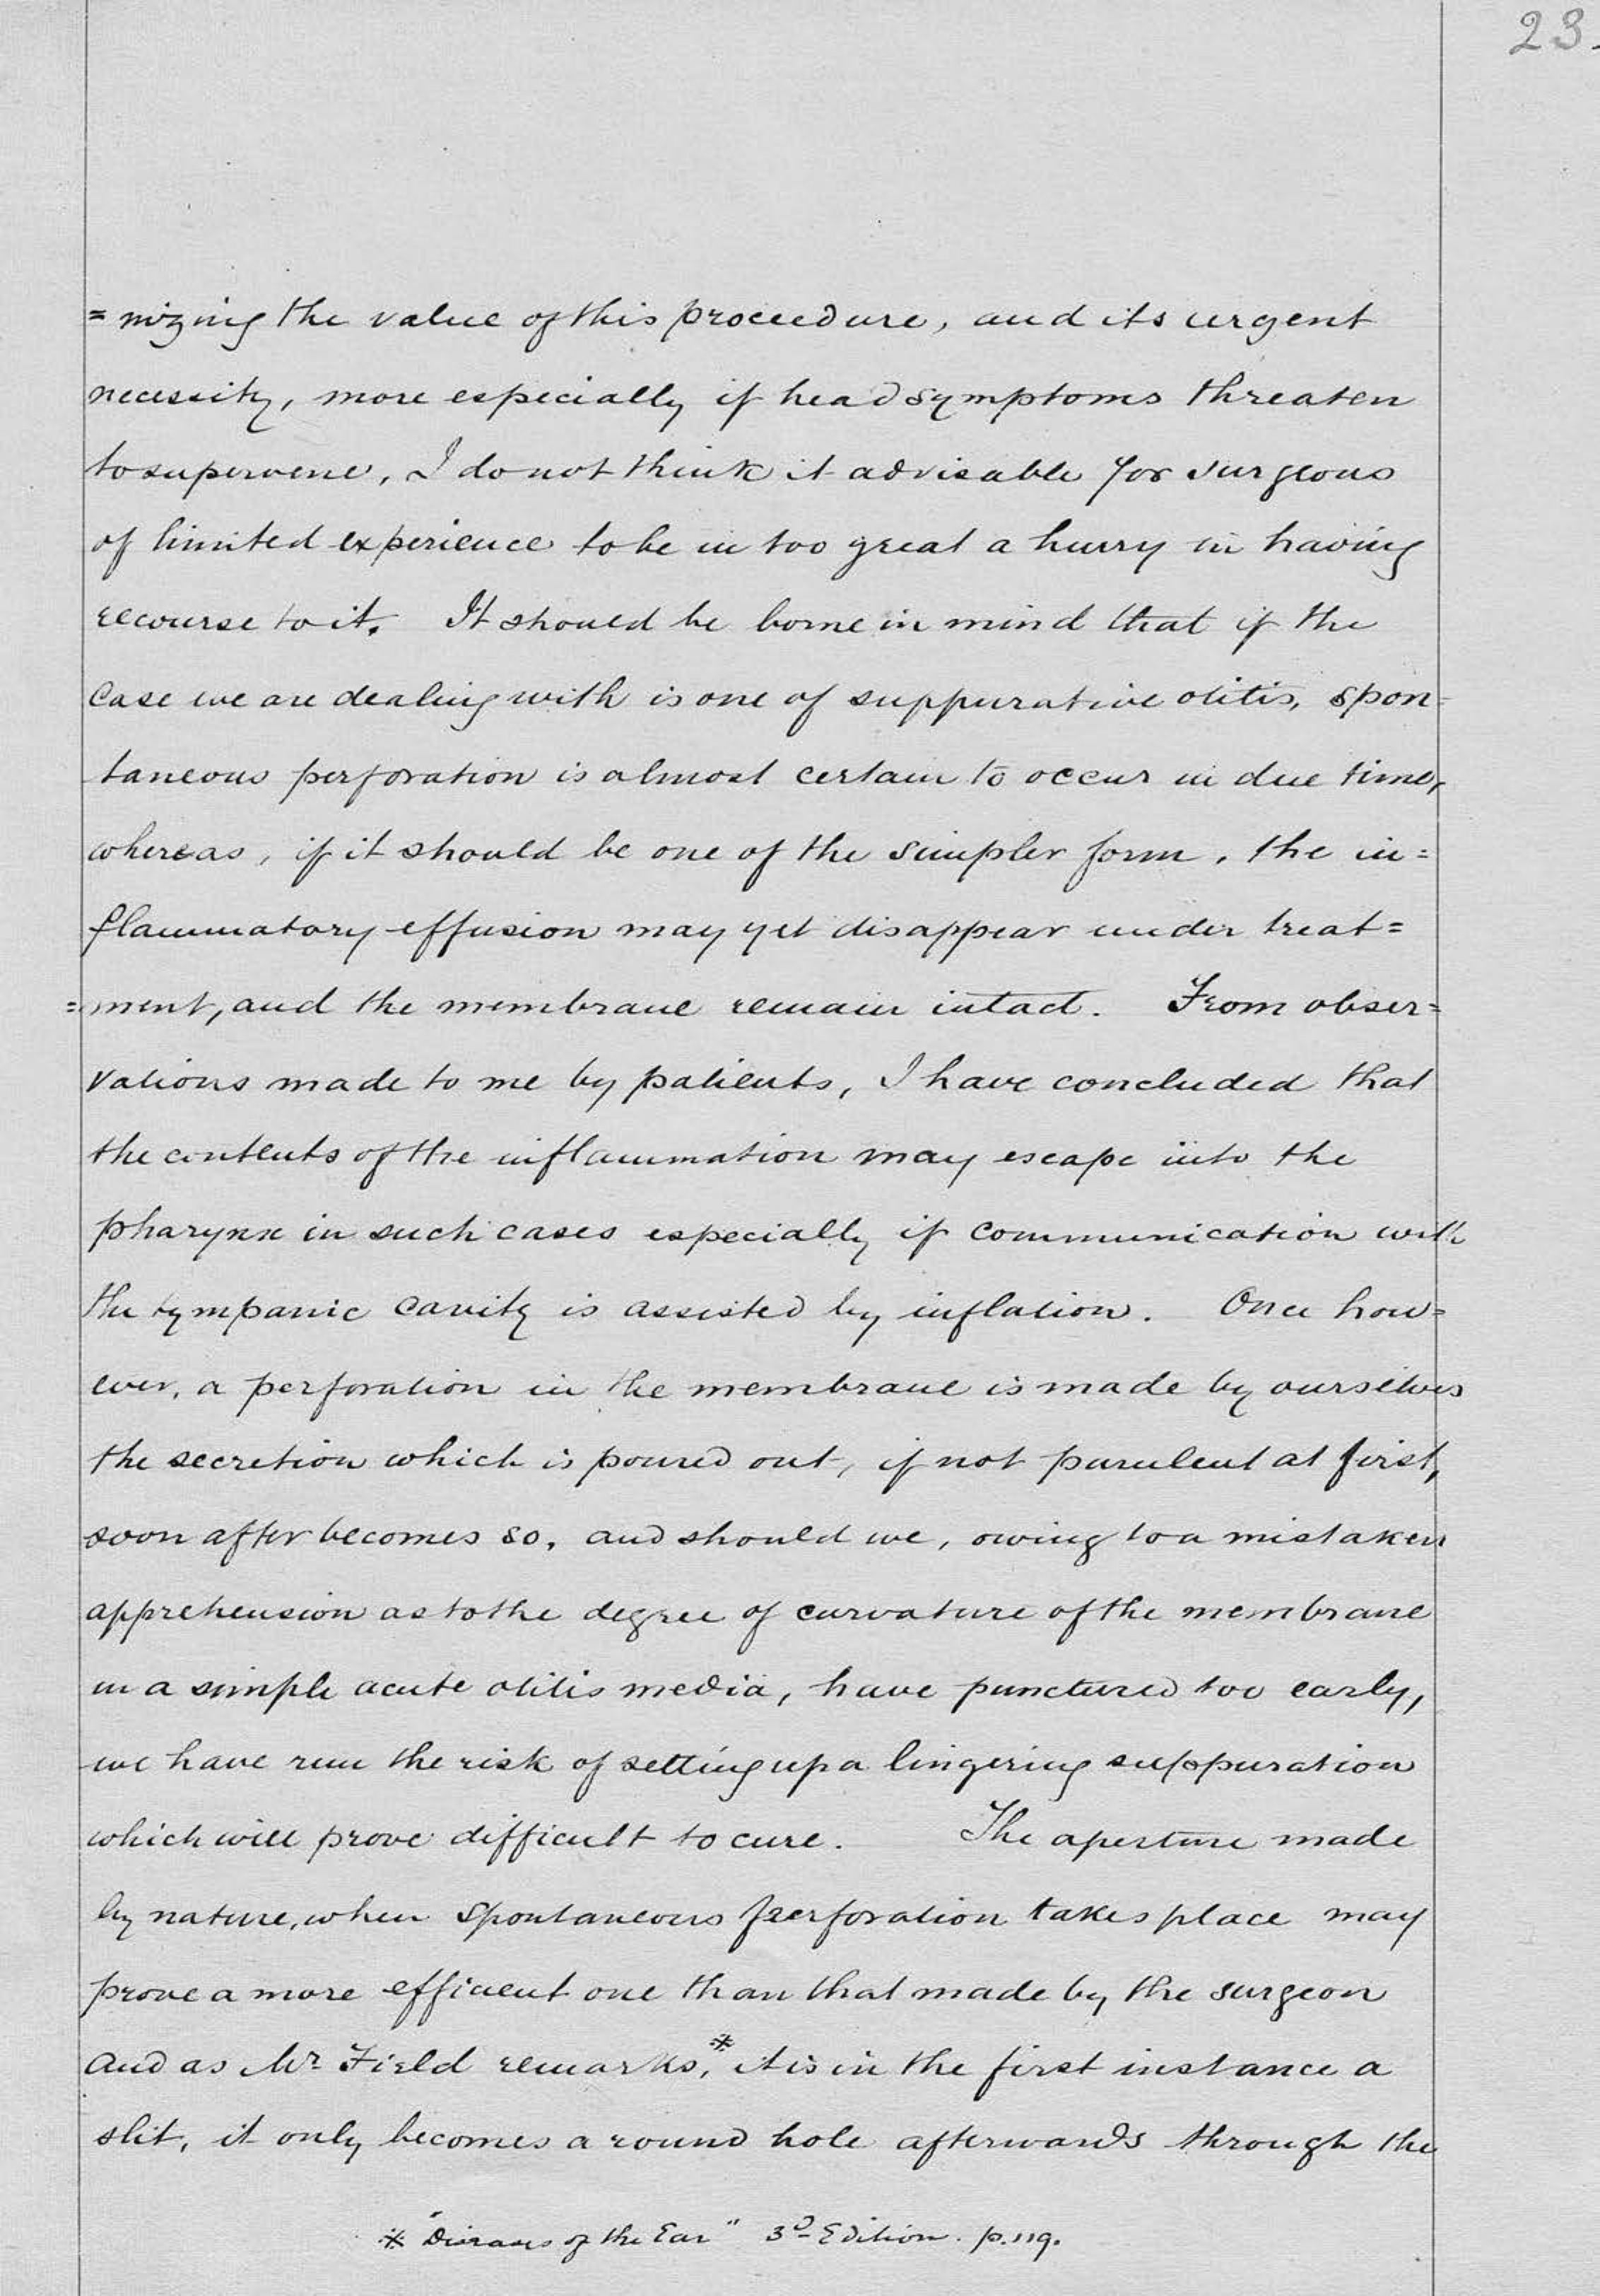 23.
=nizing the value of this proceedure, and its urgent
necessity, more especially if head symptoms threaten
to supervene, I do not think it advisable for surgeons
of limited experience to be in too great a hurry in having
recourse to it. It should be borne in mind that if the
case we are dealing with is one of suppurative otitis, spon-
taneous perforation is almost certain to occur in due time,
whereas, if it should be one of the simpler form, the in=
flammatory effusion may yet disappear under treat=
=ment, and the membrane remain intact. From obser=
vations made to me by patients, I have concluded that
the contents of the inflammation may escape into the
pharynx in such cases especially if communication with
the tympanic cavity is assisted by inflation. Once how=
ever, a perforation in the membrane is made by ourselves
the secretion which is poured out, if not purulent at first,
soon after becomes so, and should we, owing to a mistaken
apprehension as to the degree of curvature of the membrane
in a simple acute otitis media, have punctured too early,
we have run the risk of setting up a lingering suppuration
which will prove difficult to cure. The aperture made
by nature, when spontaneous perforation takes place may
prove a more efficient one than that made by the surgeon
and as Mr Field remarks,* it is in the first instance a
slit, it only becomes a round hole afterwards through the
* "Diseases of the Ear" 3d Edition. p. 119.